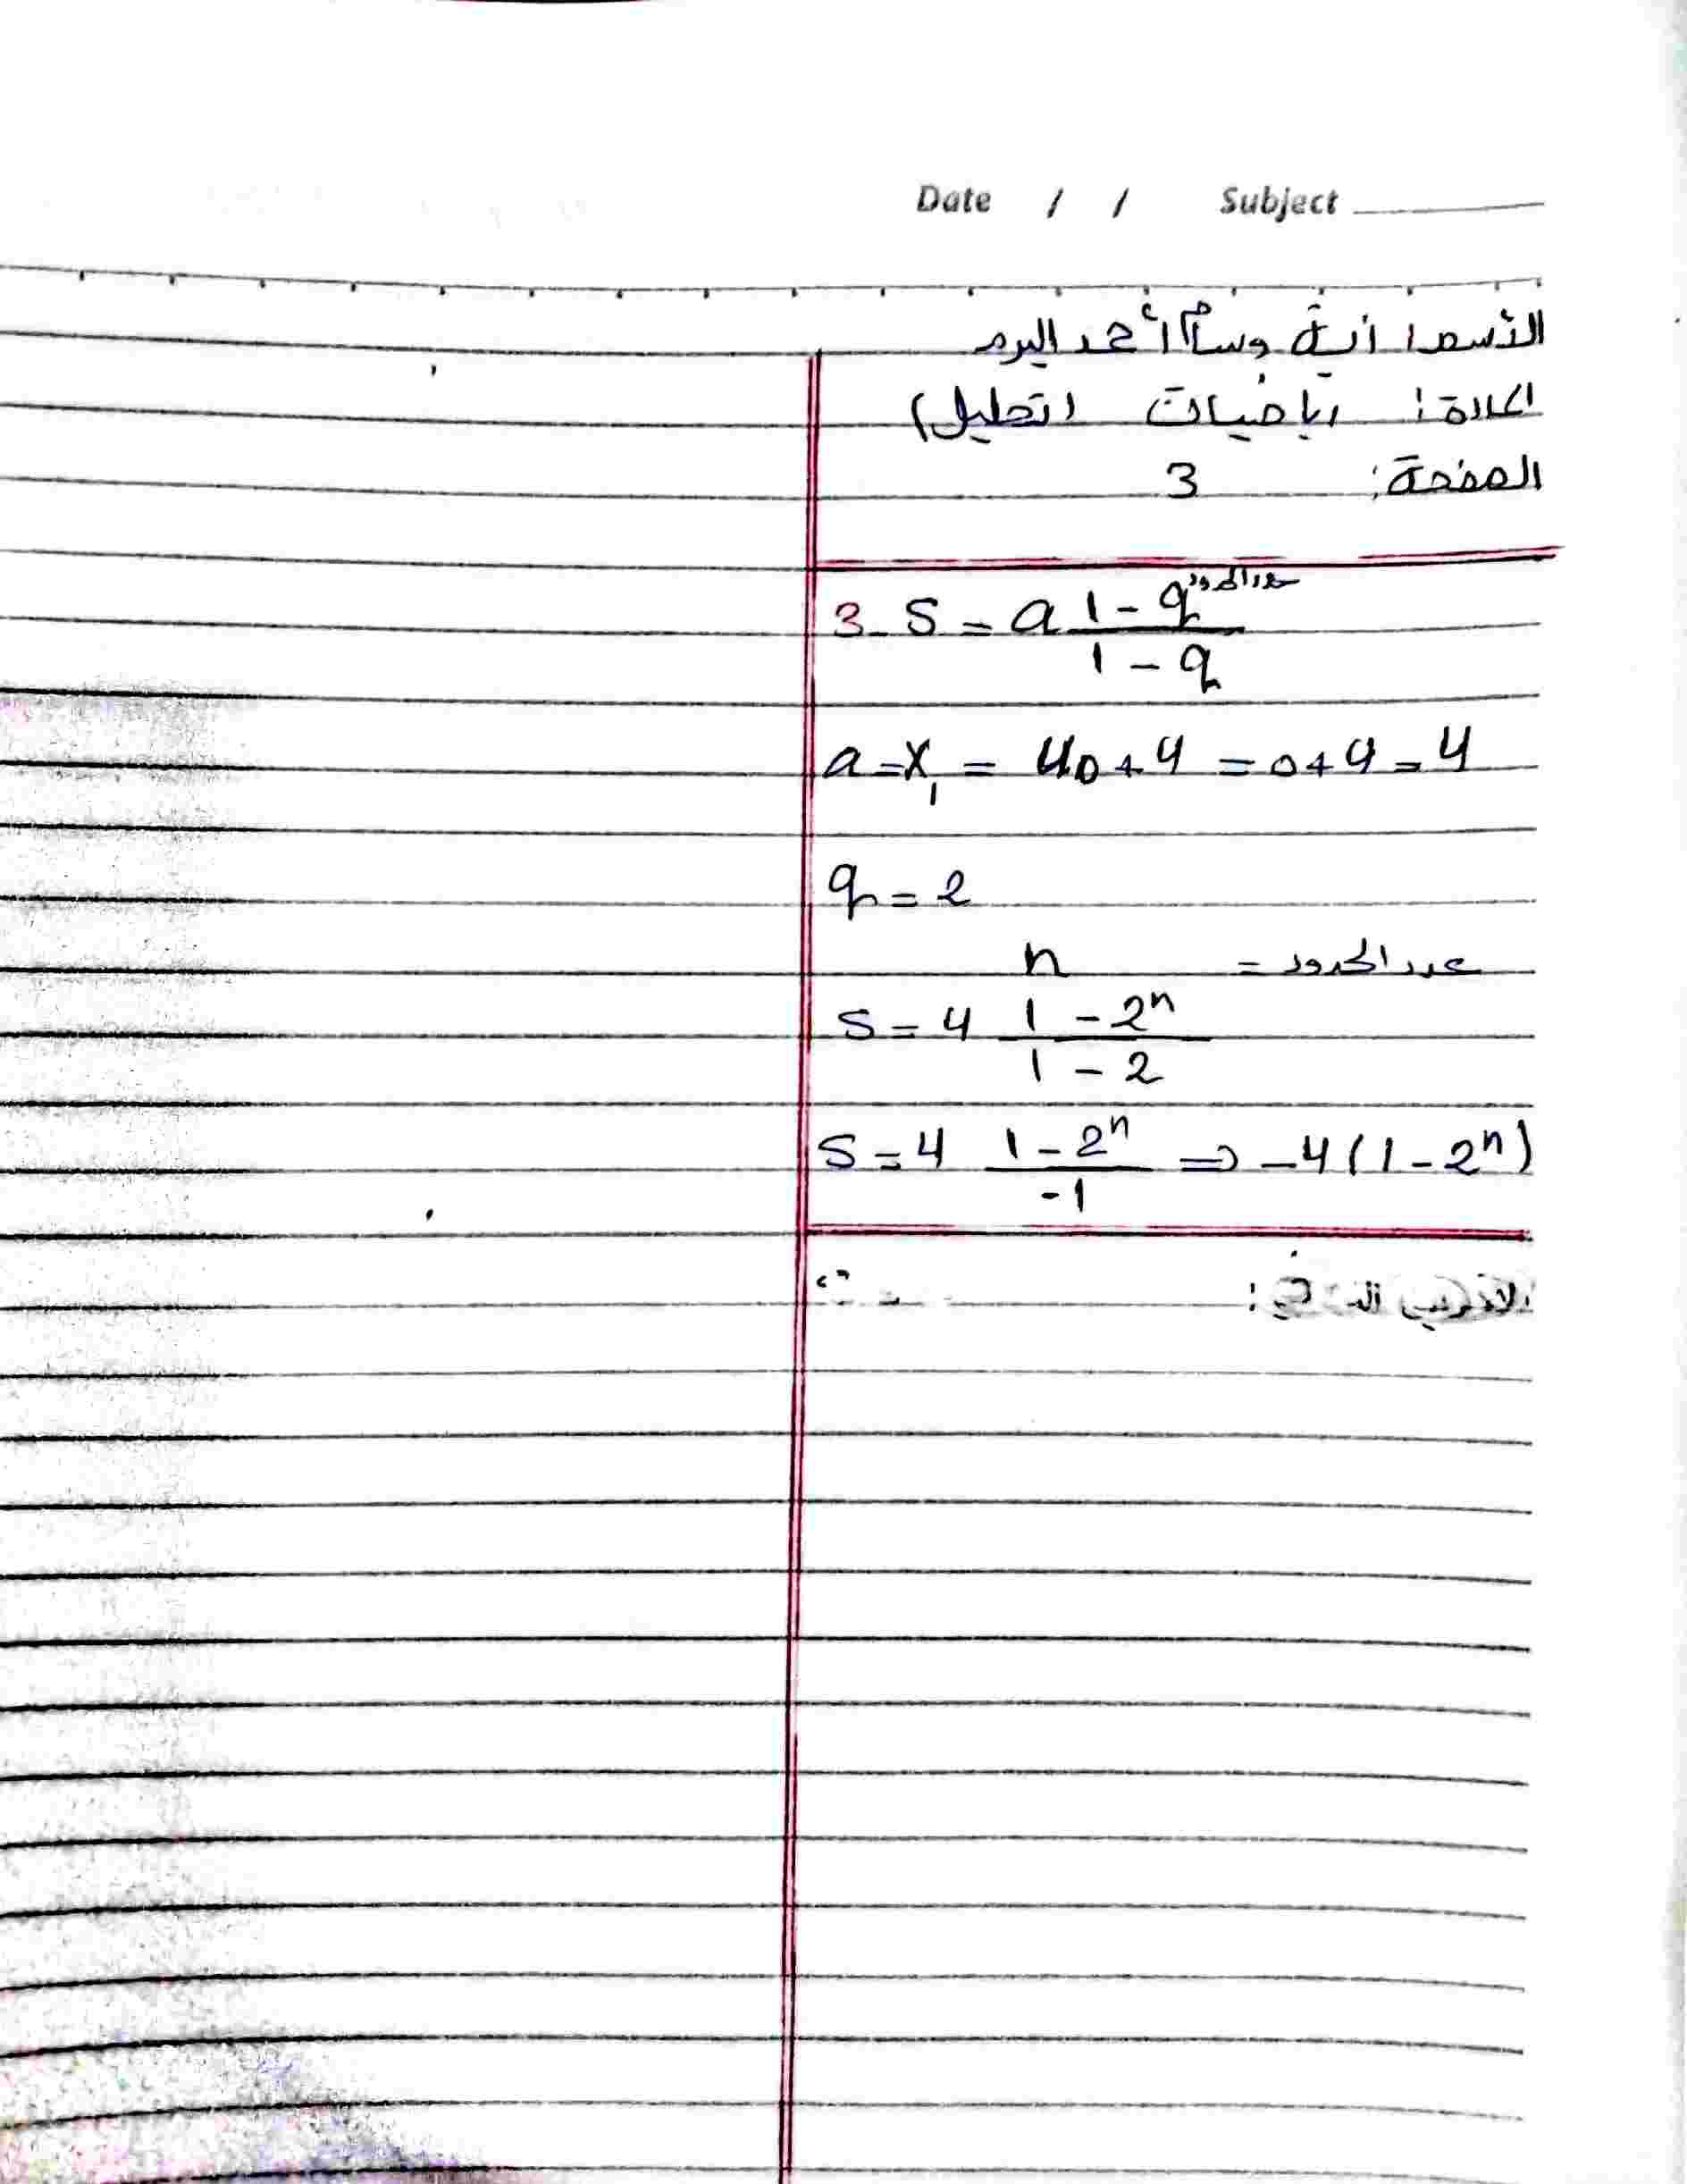 Date / / Subject
الأسم: آية وسام أحمد اليوم
المادة: رياضيات (تحليل)
الصفحة: 3
3- S = a \frac{1 - q^{عدد الحدود}}{1 - q}
a = x_1 = u_0 + 4 = 0 + 4 = 4
q = 2
عدد الحدود = n
S = 4 \frac{1 - 2^n}{1 - 2}
S = 4 \frac{1 - 2^n}{-1} ⇒ -4(1 - 2^n)